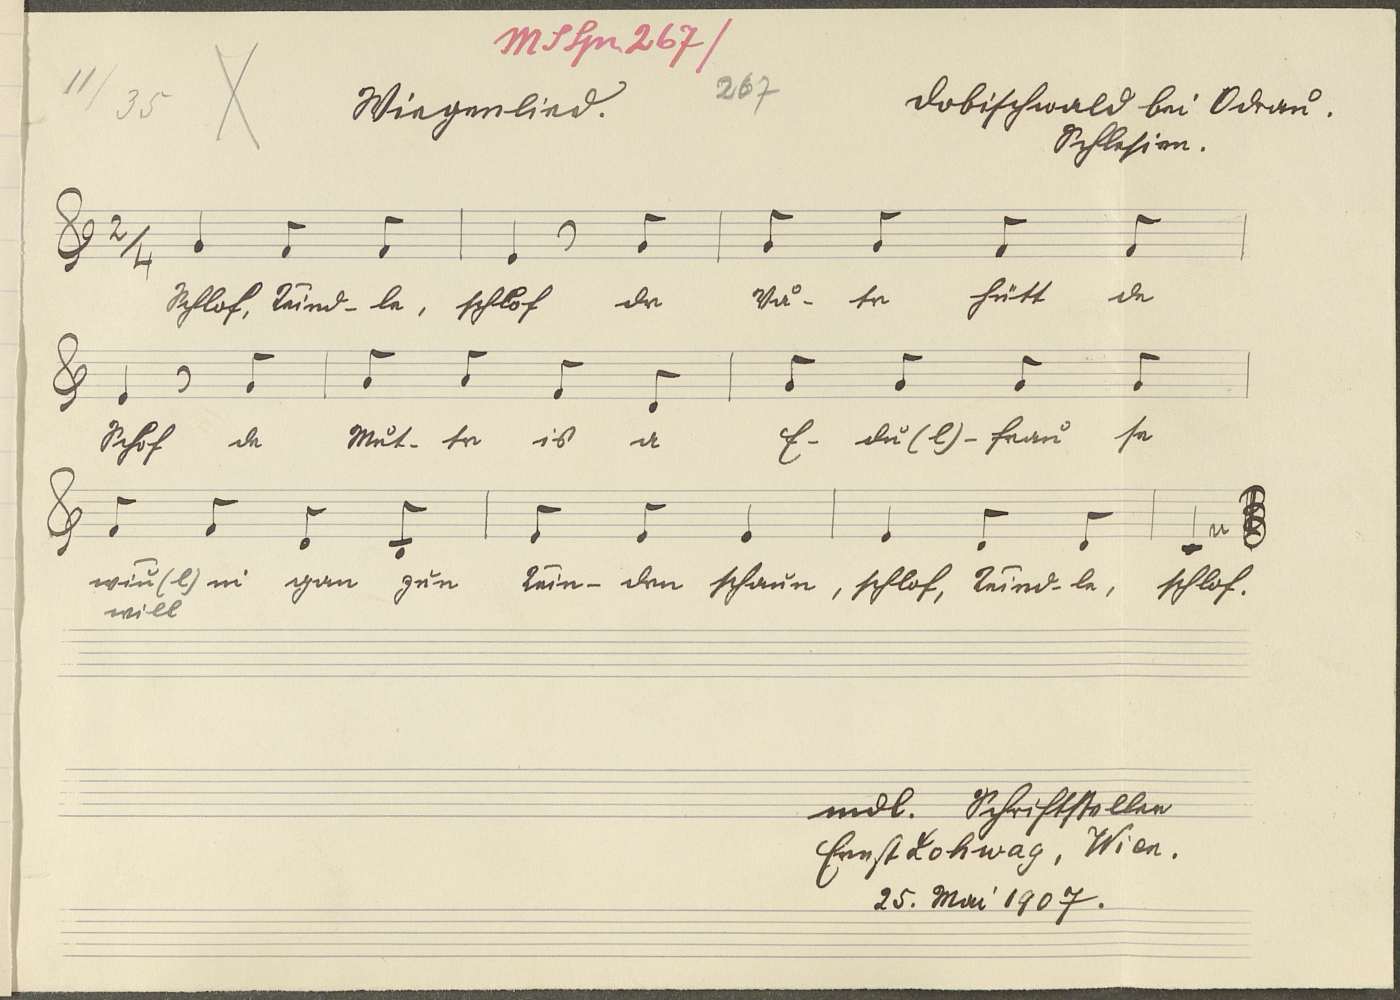 MS Spn 267/
11/35
Wiegenlied.
267
Dobischwald bei Odrau.
Schlesien.
2/4
Schlof, Keind-le, schlof de Vå-tr hütt de
Schof de Mut-tr is a E-du(l)-frau se
wiu(l) ni gan zun Kein-den schaun, schlof, Keind-le, schlof.
will
mdl. Schriftsteller
Ernst Lohwag, Wien.
25. Mai 1907.